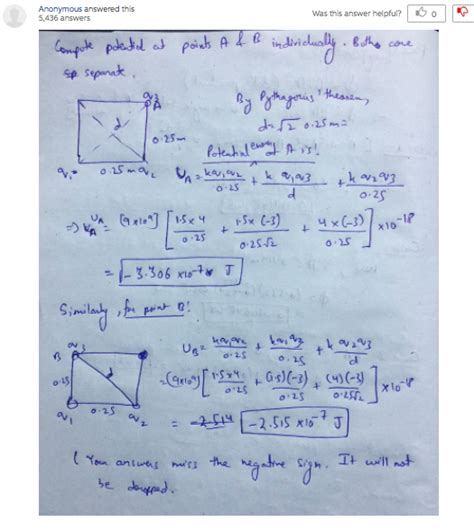 Anonymous answered this
5,436 answers
Was this answer helpful? 0
Compute potential at points A & B individually. Both are
separate.
q3
A
d
0.25m
q1 0.25m q2
By Pythagorus' theorem,
d = √2 0.25m
Potential energy at A is!
U_A = kq1q2/0.25 + k q1q3/d + k q2q3/0.25
⇒ U_A = [9x10^9] [1.5x4/0.25 + 1.5x(-3)/0.25√2 + 4x(-3)/0.25] x10^-18
= -3.306 x10^-7 J
Similarly, for point B!
q3
B
d
0.25
q1 0.25 q2
U_B = kq1q2/0.25 + kq1q3/0.25 + k q2q3/d
= (9x10^9) [1.5x4/0.25 + (1.5)(-3)/0.25 + (4)(-3)/0.25√2] x10^-18
= -2.514 -2.515 x10^-7 J
( Your answers miss the negative sign. It will not
be dropped.